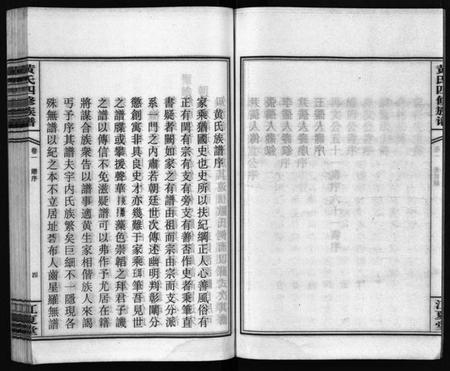 黃氏族譜序
家乘猶國史也史所以扶紀綱正人心善風俗有
正有閏有宗有支有旁支有善否作史者秉筆直
書疑者闕如家之有譜由祖而宗由宗而支分派
系一門之內肅若朝廷世次傳述幽明判彰闡分
懲創寓非具良史才亦幾難于家乘琊筆吾見世
之譜牒或攀援聲華藻色崇韜之拜君子譏
之譜以傳信不滋疑譜可以弗作予尤居在籍
將謀合族衆告以譜事適黃生家相偕族人來謁
丐予序其譜夫宇內氏族繁矣巨細不一隱現各
殊無譜以紀之本不立居址碁布人齒星羅無譜
黃氏四修族譜
卷一
譜序
四
江夏堂
黃氏四修族譜
江夏堂